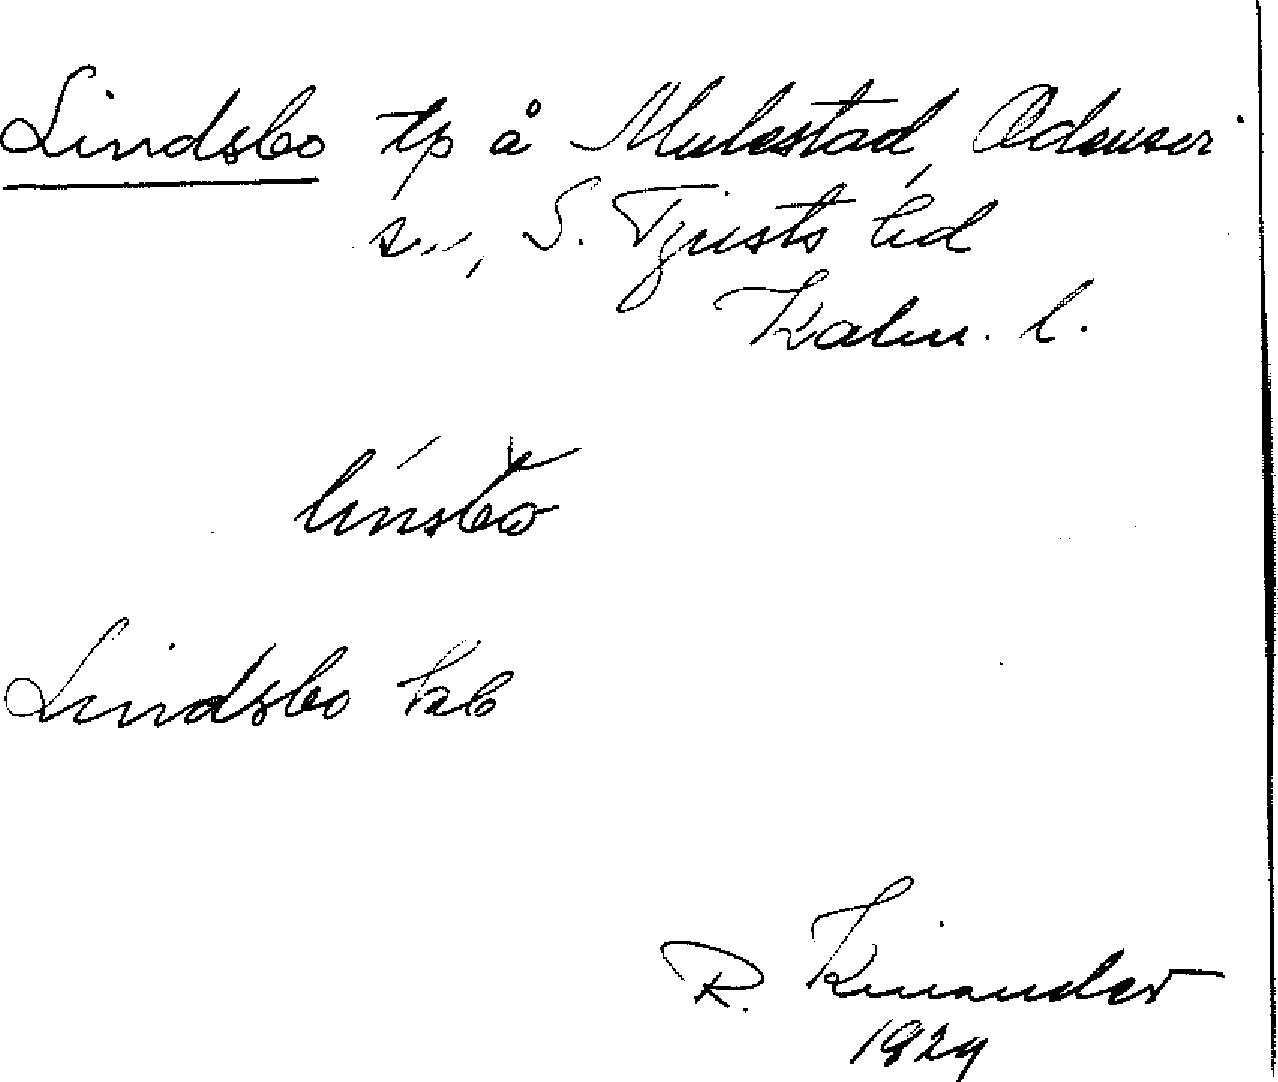 Lindsbo tp å Mulestad, Odensvi
sn, S. Tjusts hd
Kalm. l.
linsbo
Lindsbo kab
R. Kinander
1929